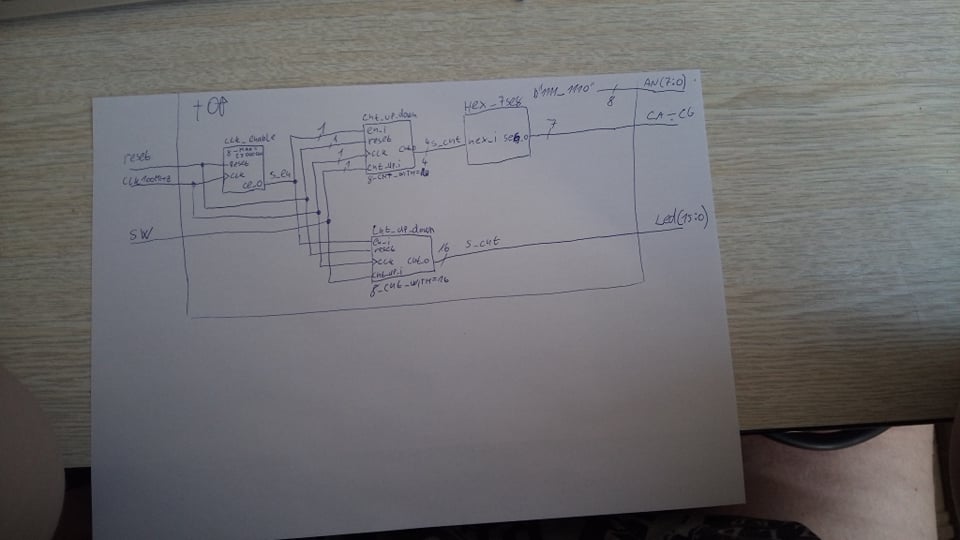 top
reset
CLK100MHZ
SW
clk_enable
g_MAX=
reset
CLK
ce_o
s_en
1
1
1
1
Cnt_up_down
en_i
reset
CLK
cnt_up_i
cnt_o
4
4
s_cnt
Hex_7seg
hex_i
seg_o
7
b"1111_1110"
8
AN(7:0)
CA÷CG
Cnt_up_down
en_i
reset
CLK
cnt_up_i
cnt_o
g_CNT_WITH=16
16
s_cnt
Led(15:0)